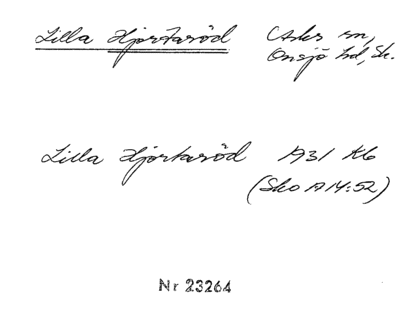 Lilla Hjortaröd Asks sn,
Onsjö hd, Sk.
Lilla Hjortaröd 1931 Kb
(Sko A 14:52)
Nr 23264